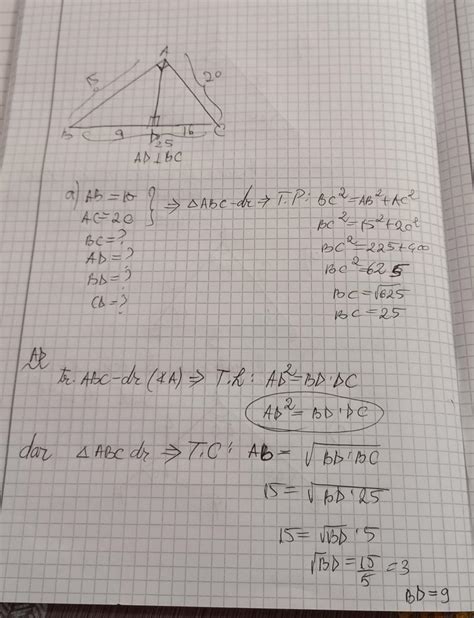 A
15
20
B
9
D
16
C
25
AD⊥BC
a) AB=15
AC=20
BC=?
AD=?
BD=?
CD=?
⇒ △ABC-dr ⇒ T.P: BC²=AB²+AC²
BC²=15²+20²
BC²=225+400
BC²=625
BC=√625
BC=25
AD
Tr. ABC-dr (∢A) ⇒ T.h: AD²=BD·DC
AD²=BD·DC
dar △ABC dr ⇒ T.C: AB=√BD·BC
15=√BD·25
15=√BD·5
√BD=15/5=3
BD=9